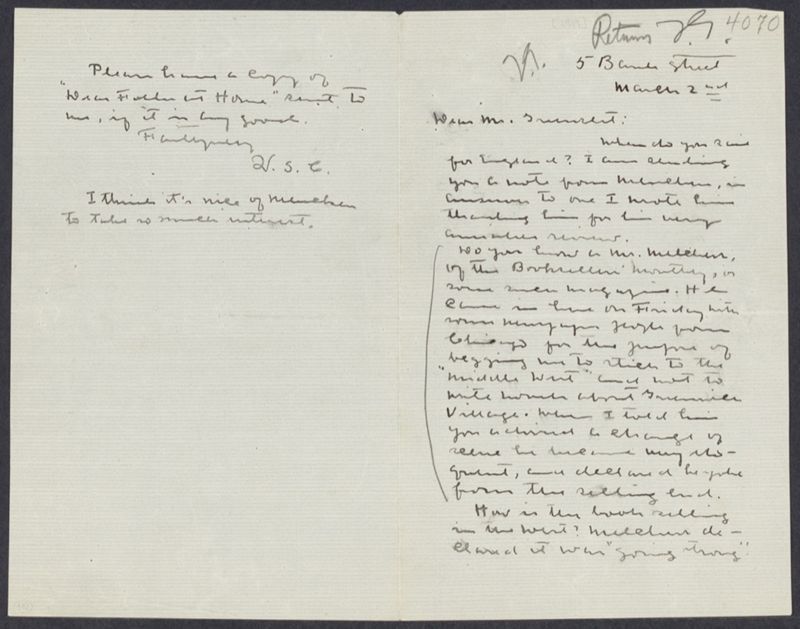 4070
Returns F.G.
5 Bank Street
March 2nd
Dear Mr. Greenslet:
When do you sail
for England? I am sending
you a note from Mencken, in
answer to one I wrote him
thanking him for his very
amiable review.
Do you know a Mr. Melcher,
of the Booksellers' Monthly, or
some such magazine. He
came in here on Friday with
some newspaper people from
Chicago for the purpose of
begging me to stick to the
"middle West" and not to
write novels about Greenwich
Village. When I told him
you advised a change of
scene he became very elo-
quent, and declared he spoke
from the selling end.
How is the book selling
in the West? Melcher de-
clared it was "going strong".
Please have a copy of
"Dear Folks at Home" sent to
me, if it is any good.
Faithfully
W. S. C.
I think it's nice of Mencken
to take so much interest.